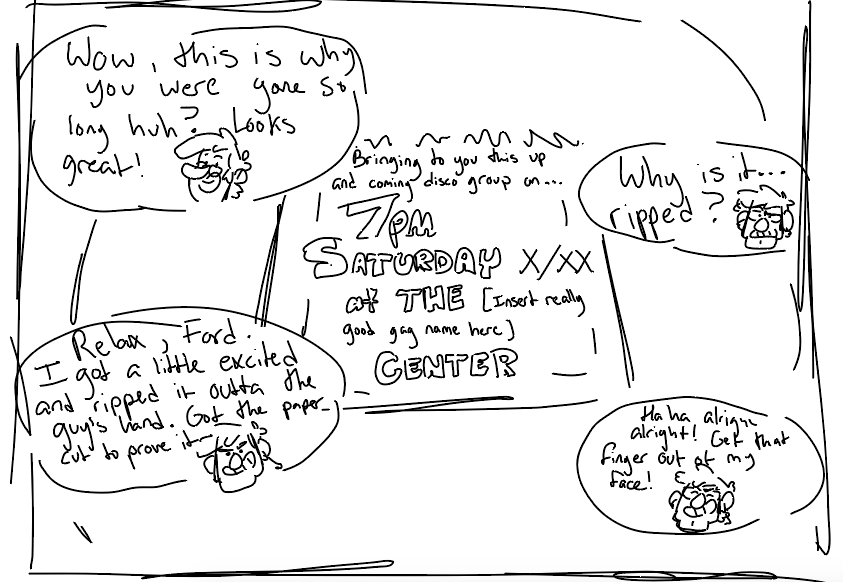 Wow, this is why
you were gone so
long huh? Looks
great!
Bringing to you this up
and coming disco group on...
7pm
SATURDAY X/XX
at THE [Insert really
good gag name here]
CENTER
Why is it...
ripped?
Relax, Ford.
I got a little excited
and ripped it outta the
guy's hand. Got the paper-
cut to prove it--
Ha ha alright,
alright! Get that
finger out of my
face!